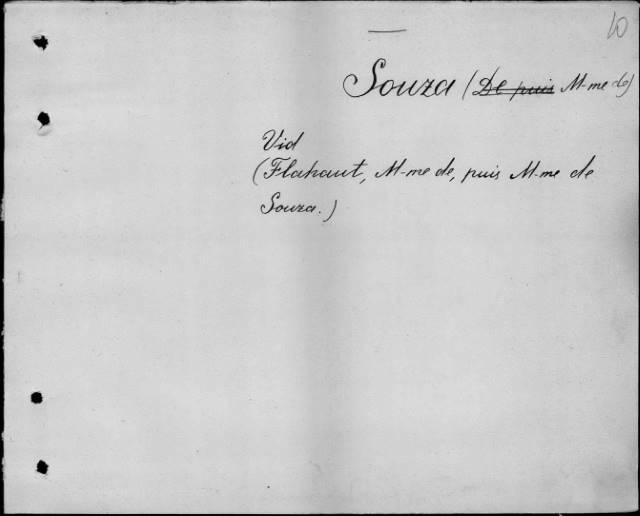 10
Souza (De puis M-me de)
Vid
(Flahaut, M-me de, puis M-me de
Souza.)